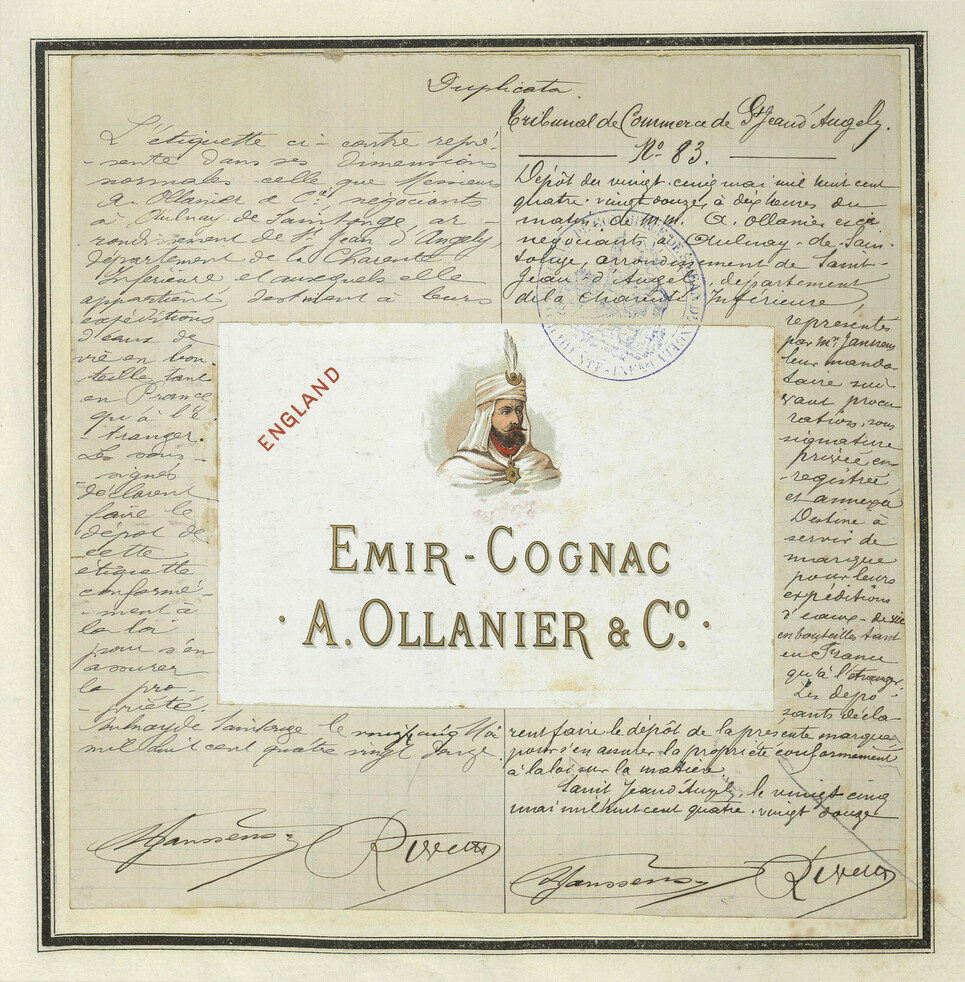 Duplicata
L'étiquette ci-contre repré-
-sente dans ses dimensions
normales celle que Messieurs
A. Ollanier & Cie négociants
à Aulnay de Saintonge ar-
-rondissement de St Jean d'Angely,
département de la Charente
Inférieure et auxquels elle
appartient, destinent à leurs
expéditions
d'eaux de
vie en bou-
-teilles tant
en France
qu'à l'é-
-tranger.
Les sous-
-signés
déclarent
faire le
dépôt de
cette
étiquette
conformé-
-ment à
la loi
pour s'en
assurer
la pro-
-priété.
Aulnay de Saintonge le vingt cinq Mai
mil huit cent quatre vingt douze.
Janssens
Tribunal de Commerce de St Jean d'Angely.
No 83.
Dépôt du vingt-cinq mai mil huit cent
quatre-vingt douze, à dix heures du
matin, de MM. A. Ollanier & Cie
négociants à Aulnay-de-Sain-
-tonge, arrondissement de Saint-
Jean d'Angely, département
de la Charente Inférieure,
représentés
par Mr Janssens
leur manda-
-taire sui-
vant procu-
ration, sous
signature
privée en-
-registrée
et annexée
Destiné à
servir de
marque
pour leurs
expéditions
d'eaux-de-vie
en bouteilles tant
en France
qu'à l'étranger.
Les dépo-
sants décla-
rent faire le dépôt de la présente marque
pour s'en assurer la propriété conformément
à la loi sur la matière.
Saint Jean d'Angely, le vingt cinq
mai mil huit cent quatre-vingt douze
Janssens
ENGLAND
EMIR-COGNAC
· A. OLLANIER & Co. ·